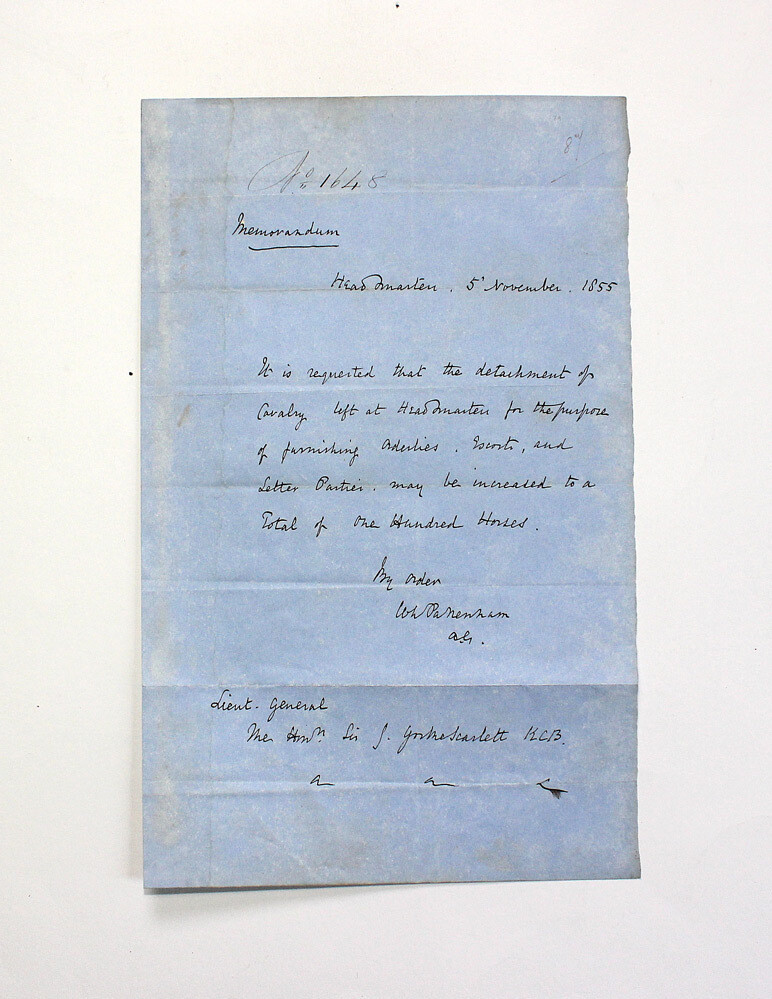 No 1648
Memorandum
Head Quarters. 5' November. 1855
It is requested that the detachment of
Cavalry left at Head Quarters for the purpose
of furnishing Orderlies, Escorts, and
Letter Parties. may be increased to a
Total of One Hundred Horses.
By Order
WLPakenham
A.G.
Lieut. General
The Honble. Sir J. Yorke Scarlett KCB.